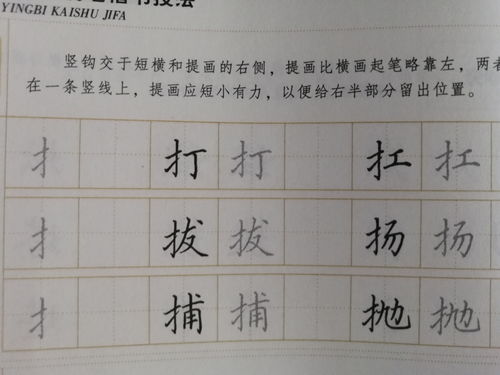 YINGBI KAISHU JIFA
竖钩交于短横和提画的右侧，提画比横画起笔略靠左，两者
在一条竖线上，提画应短小有力，以便给右半部分留出位置。
扌 打 打 扛 扛
扌 拔 拔 扬 扬
扌 捕 捕 抛 抛